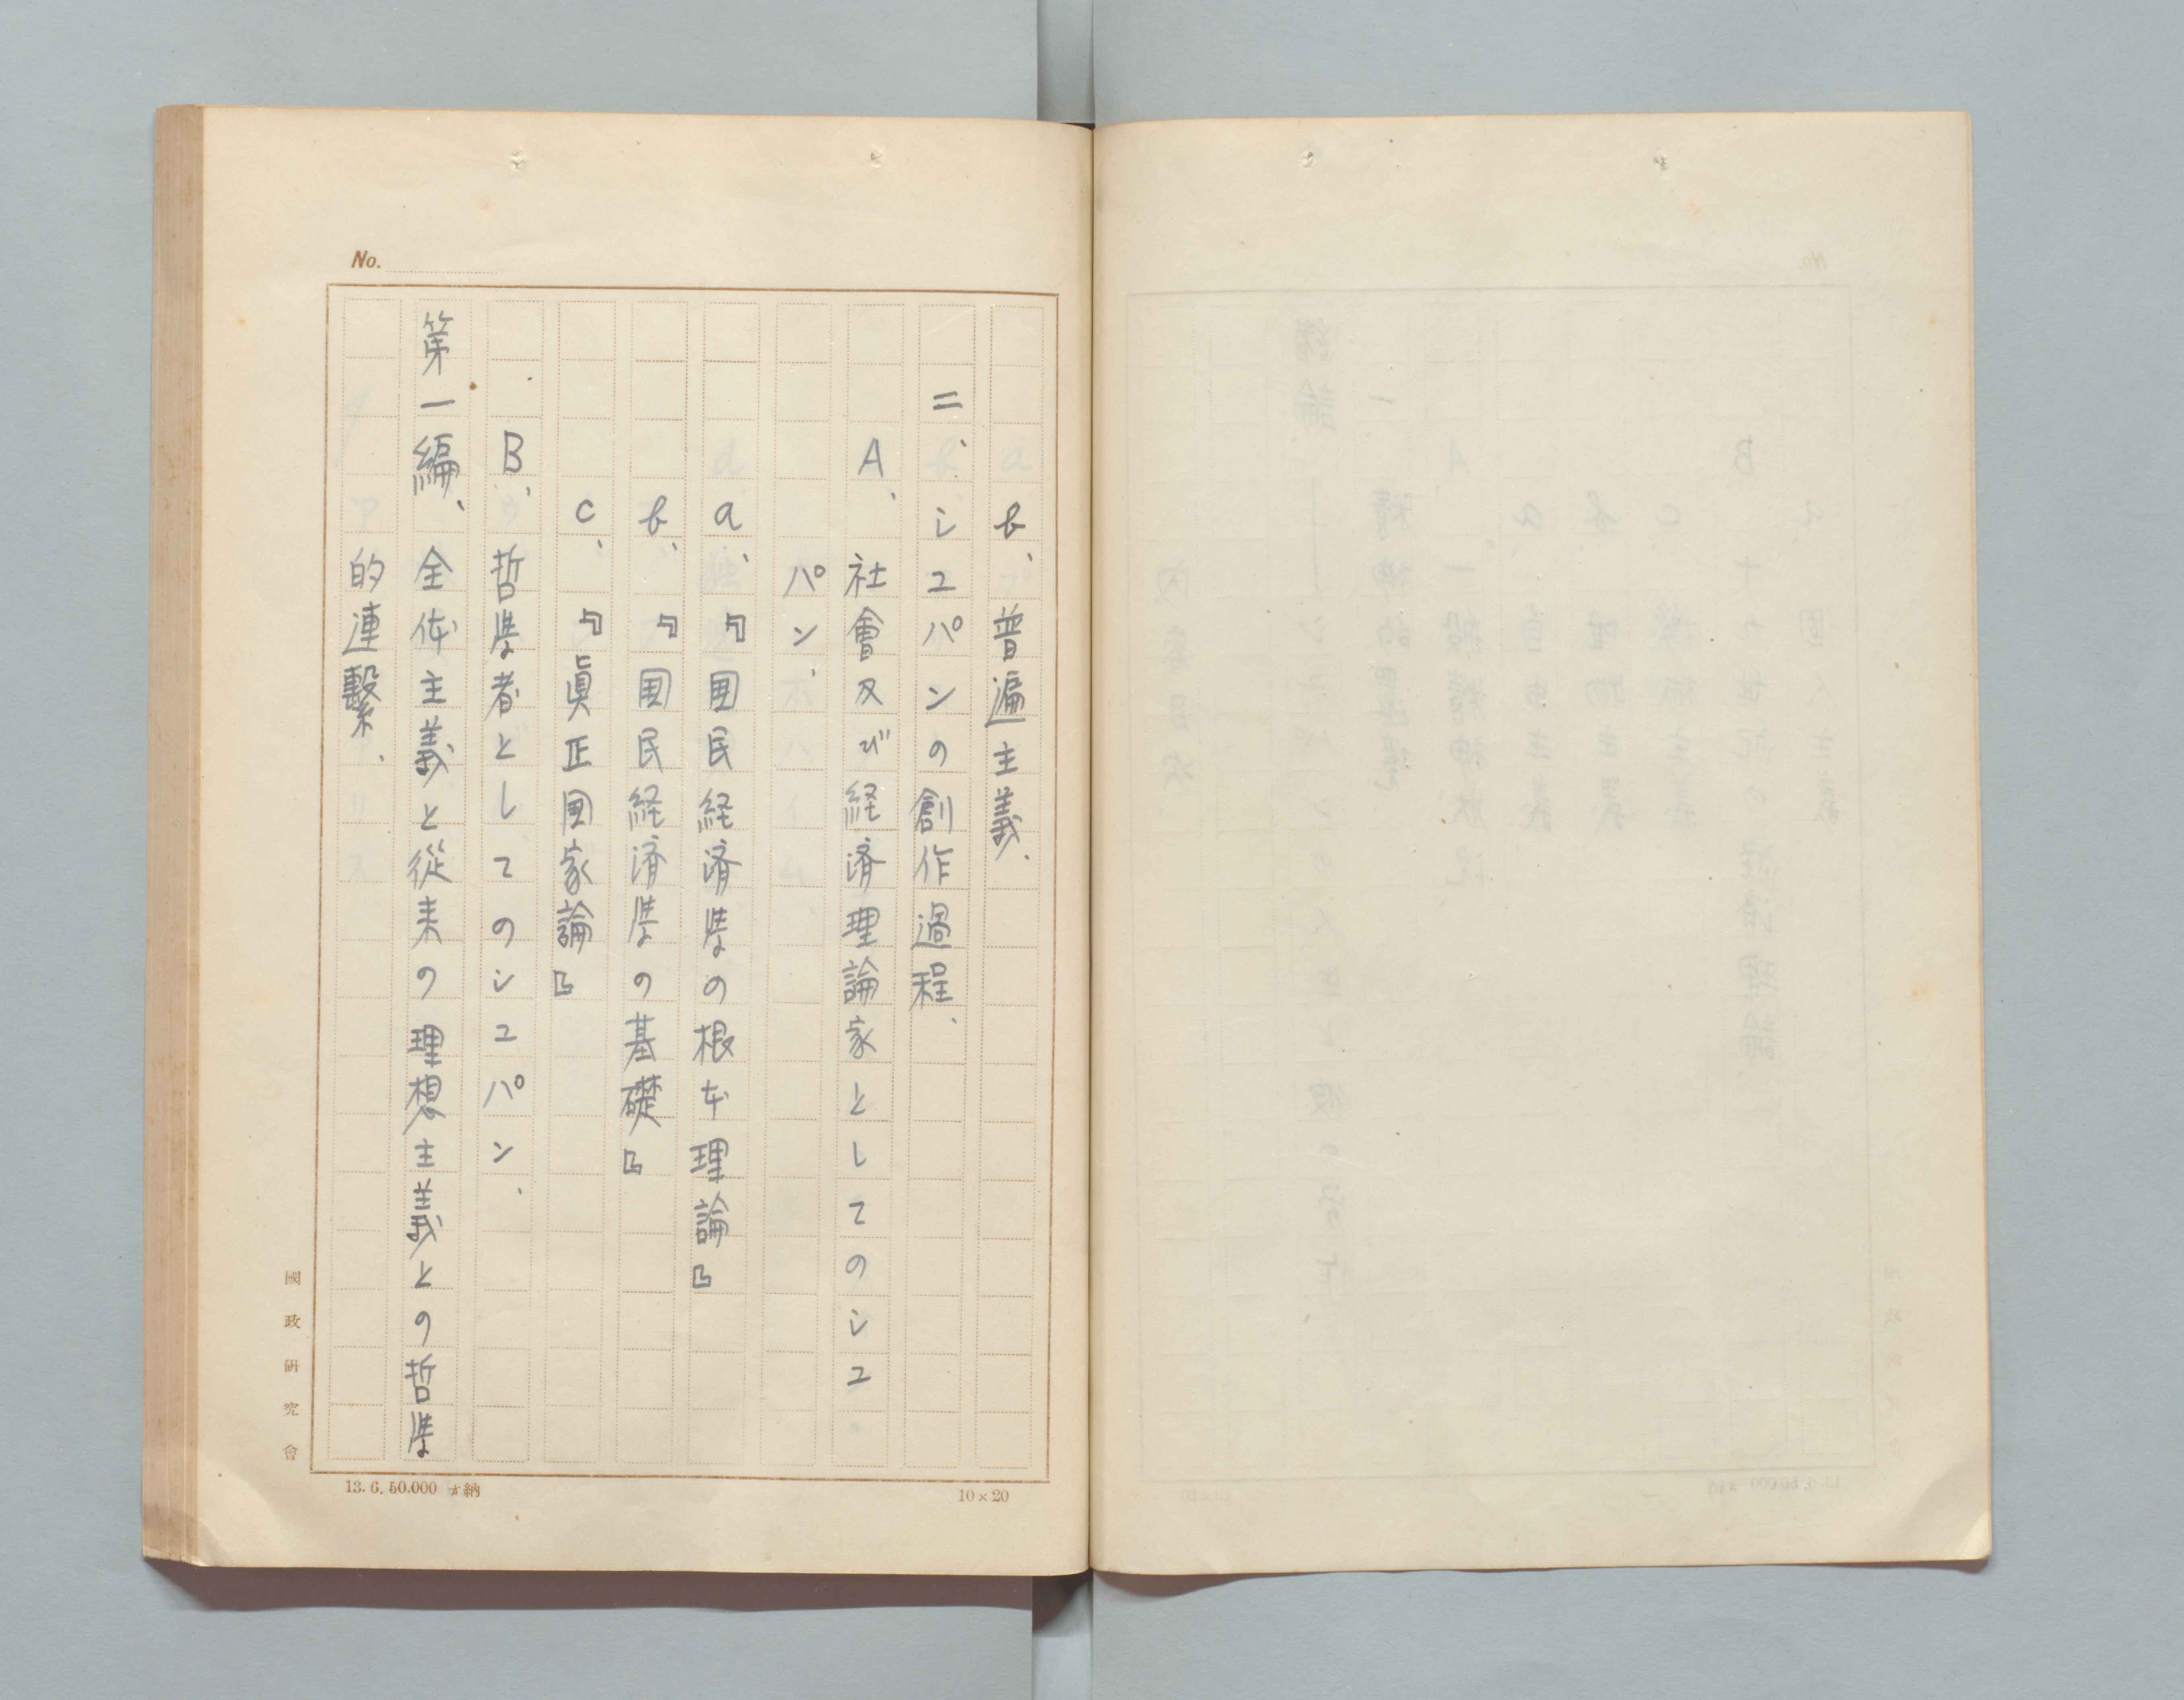 No.
b、普遍主義、
二、シュパンの創作過程、
A、社會及び経済理論家としてのシュ
パン、
a、『国民経済学の根本理論』
b、『国民経済学の基礎』
c、『眞正国家論』
B、哲学者としてのシュパン、
第一編、全体主義と從来の理想主義との哲学
的連繋、
國政研究會
13.6.50.000 納
10×20